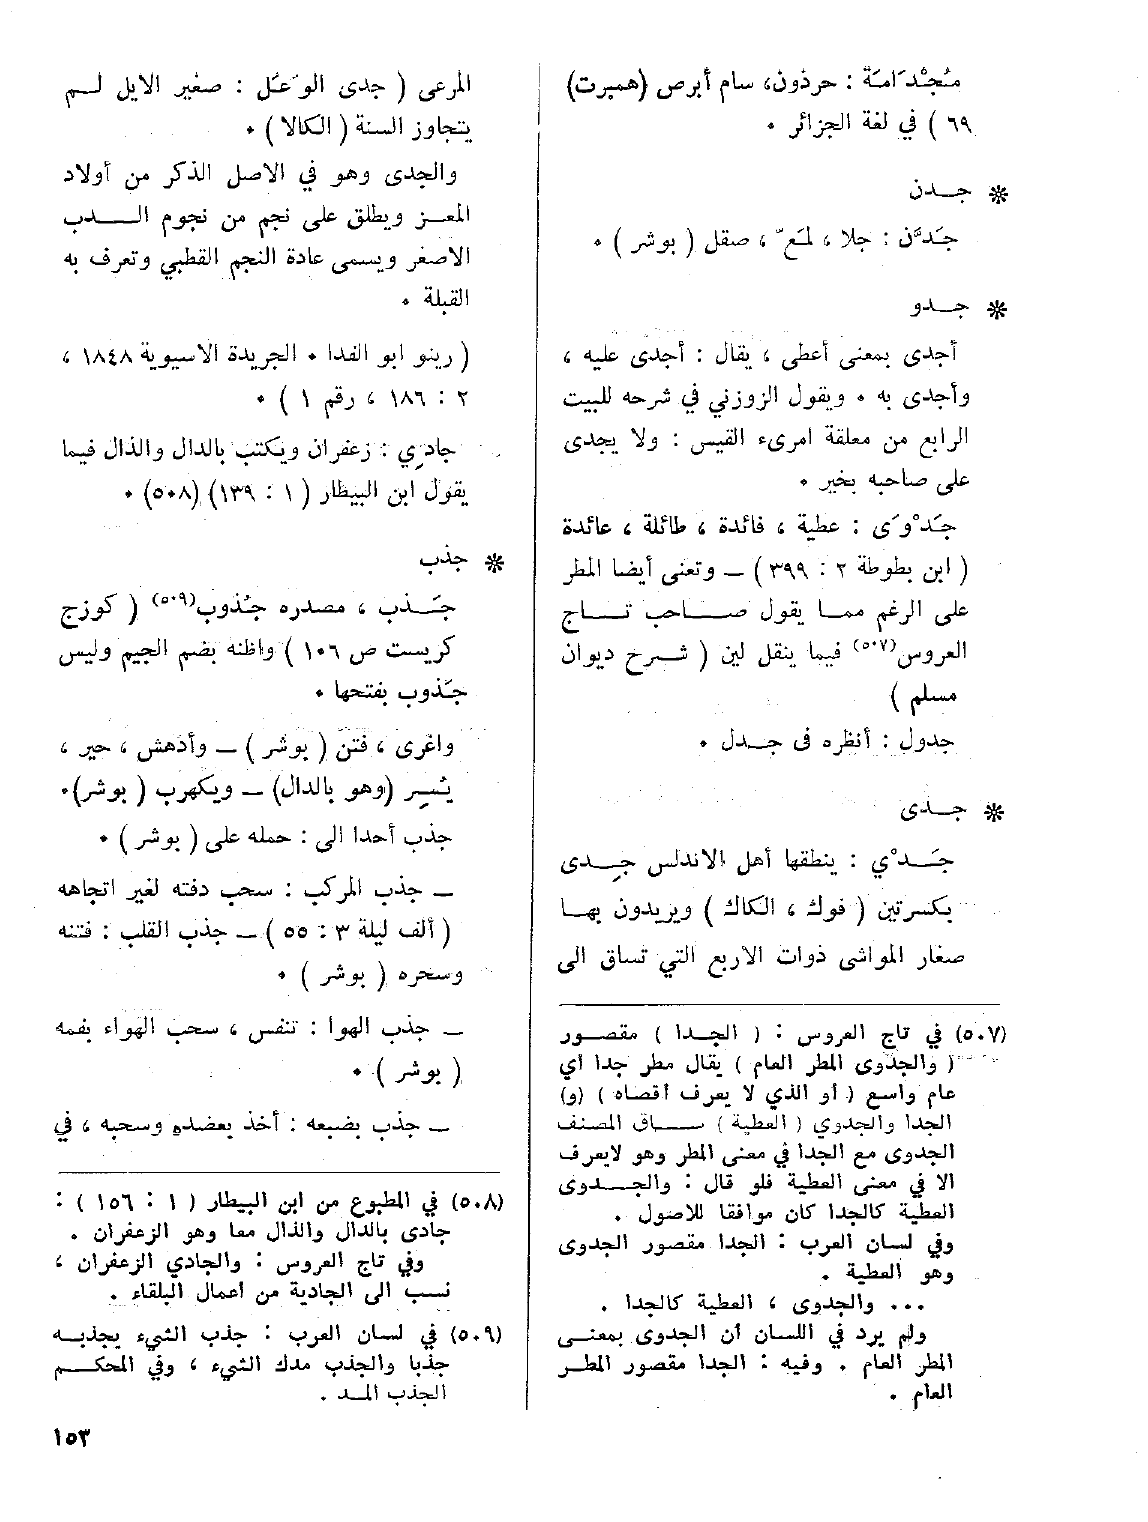 مُجْدَامَة : حرذون، سام أبرص (همبرت)
٦٩ ) في لغة الجزائر ٠
❋ جــدن
جَدَّن : جلا ، لمّع ، صقل ( بوشر ) ٠
❋ جــدو
أجدى بمعنى أعطى ، يقال : أجدى عليه ،
وأجدى به ٠ ويقول الزوزني في شرحه للبيت
الرابع من معلقة امرىء القيس : ولا يجدى
على صاحبه بخير ٠
جَدْوَى : عطية ، فائدة ، طائلة ، عائدة
( ابن بطوطة ٢ : ٣٩٩ ) ــ وتعنى أيضا المطر
على الرغم ممــا يقول صــاحب تــاج
العروس(٥٠٧) فيما ينقل لين ( شــرح ديوان
مسلم )
جدول : أنظره فى جــدل ٠
❋ جــدى
جَــدْي : ينطقها أهل الاندلس جِــدى
بكسرتين ( فوك ، الكاك ) ويريدون بهــا
صغار المواشى ذوات الاربع التي تساق الى
(٥٠٧) في تاج العروس : ( الجــدا ) مقصــور
( والجدوى المطر العام ) يقال مطر جدا أي
عام واسع ( أو الذي لا يعرف أقصاه ) (و)
الجدا والجدوي ( العطية ) ســاق المصنف
الجدوى مع الجدا في معنى المطر وهو لايعرف
الا في معنى العطية فلو قال : والجــدوى
العطية كالجدا كان موافقا للاصول .
وفي لسان العرب : الجدا مقصور الجدوى
وهو العطية .
... والجدوى ، العطية كالجدا .
ولم يرد في اللسان أن الجدوى بمعنــى
المطر العام . وفيه : الجدا مقصور المطــر
العام .
المرعى ( جدى الوَعَل : صغير الايل لــم
يتجاوز السنة ( الكالا ) ٠
والجدى وهو في الاصل الذكر من أولاد
المعــز ويطلق على نجم من نجوم الــدب
الاصغر ويسمى عادة النجم القطبي وتعرف به
القبلة ٠
( رينو ابو الفدا ٠ الجريدة الاسيوية ١٨٤٨ ،
٢ : ١٨٦ ، رقم ١ ) ٠
جادِي : زعفران ويكتب بالدال والذال فيما
يقول ابن البيطار ( ١ : ١٣٩) (٥٠٨) ٠
❋ جذب
جَــذب ، مصدره جُذوب(٥٠٩) ( كوزج
كريست ص ١٠٦ ) واظنه بضم الجيم وليس
جَذوب بفتحها ٠
واغرى ، فتن ( بوشر ) ــ وأدهش ، حير ،
يُسِر (وهو بالدال) ــ ويكهرب ( بوشر)٠
جذب أحدا الى : حمله على ( بوشر ) ٠
ــ جذب المركب : سحب دفته لغير اتجاهه
( ألف ليلة ٣ : ٥٥ ) ــ جذب القلب : فتنه
وسحره ( بوشر ) ٠
ــ جذب الهوا : تنفس ، سحب الهواء بفمه
( بوشر ) ٠
ــ جذب بضبعه : أخذ بعضده وسحبه ، في
(٥٠٨) في المطبوع من ابن البيطار ( ١ : ١٥٦ ) :
جادى بالدال والذال معا وهو الزعفران .
وفي تاج العروس : والجادي الزعفران ،
نسب الى الجادية من أعمال البلقاء .
(٥٠٩) في لسان العرب : جذب الشيء يجذبــه
جذبا والجذب مدك الشيء ، وفي المحكــم
الجذب المــد .
١٥٣